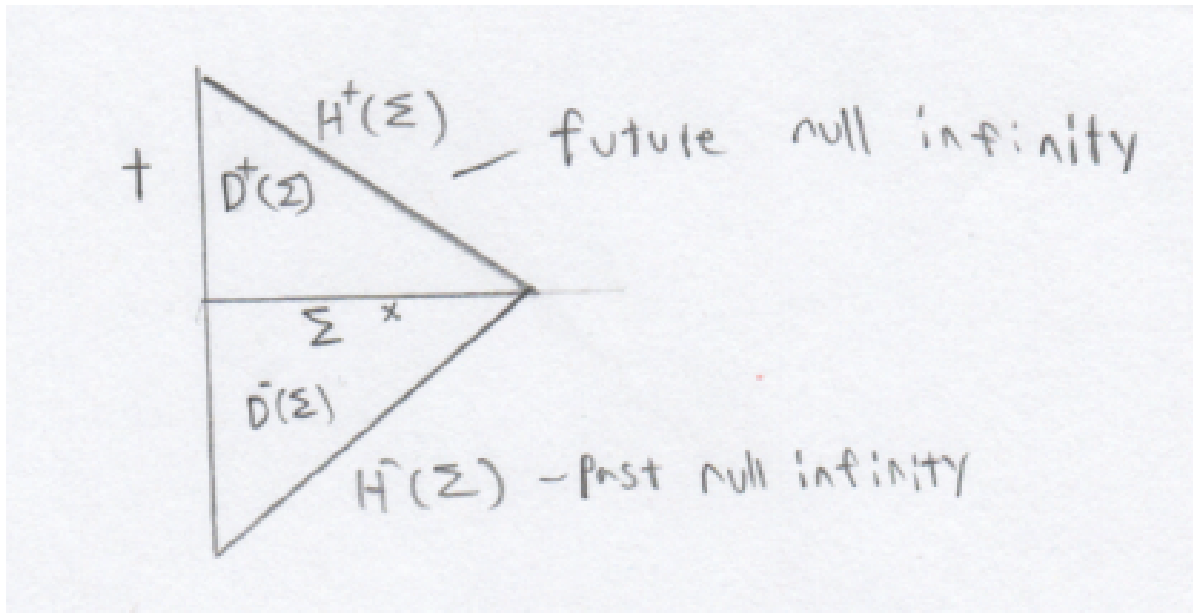 H⁺(Σ)
future null infinity
t
D⁺(Σ)
Σ x
D⁻(Σ)
H⁻(Σ) - Past null infinity